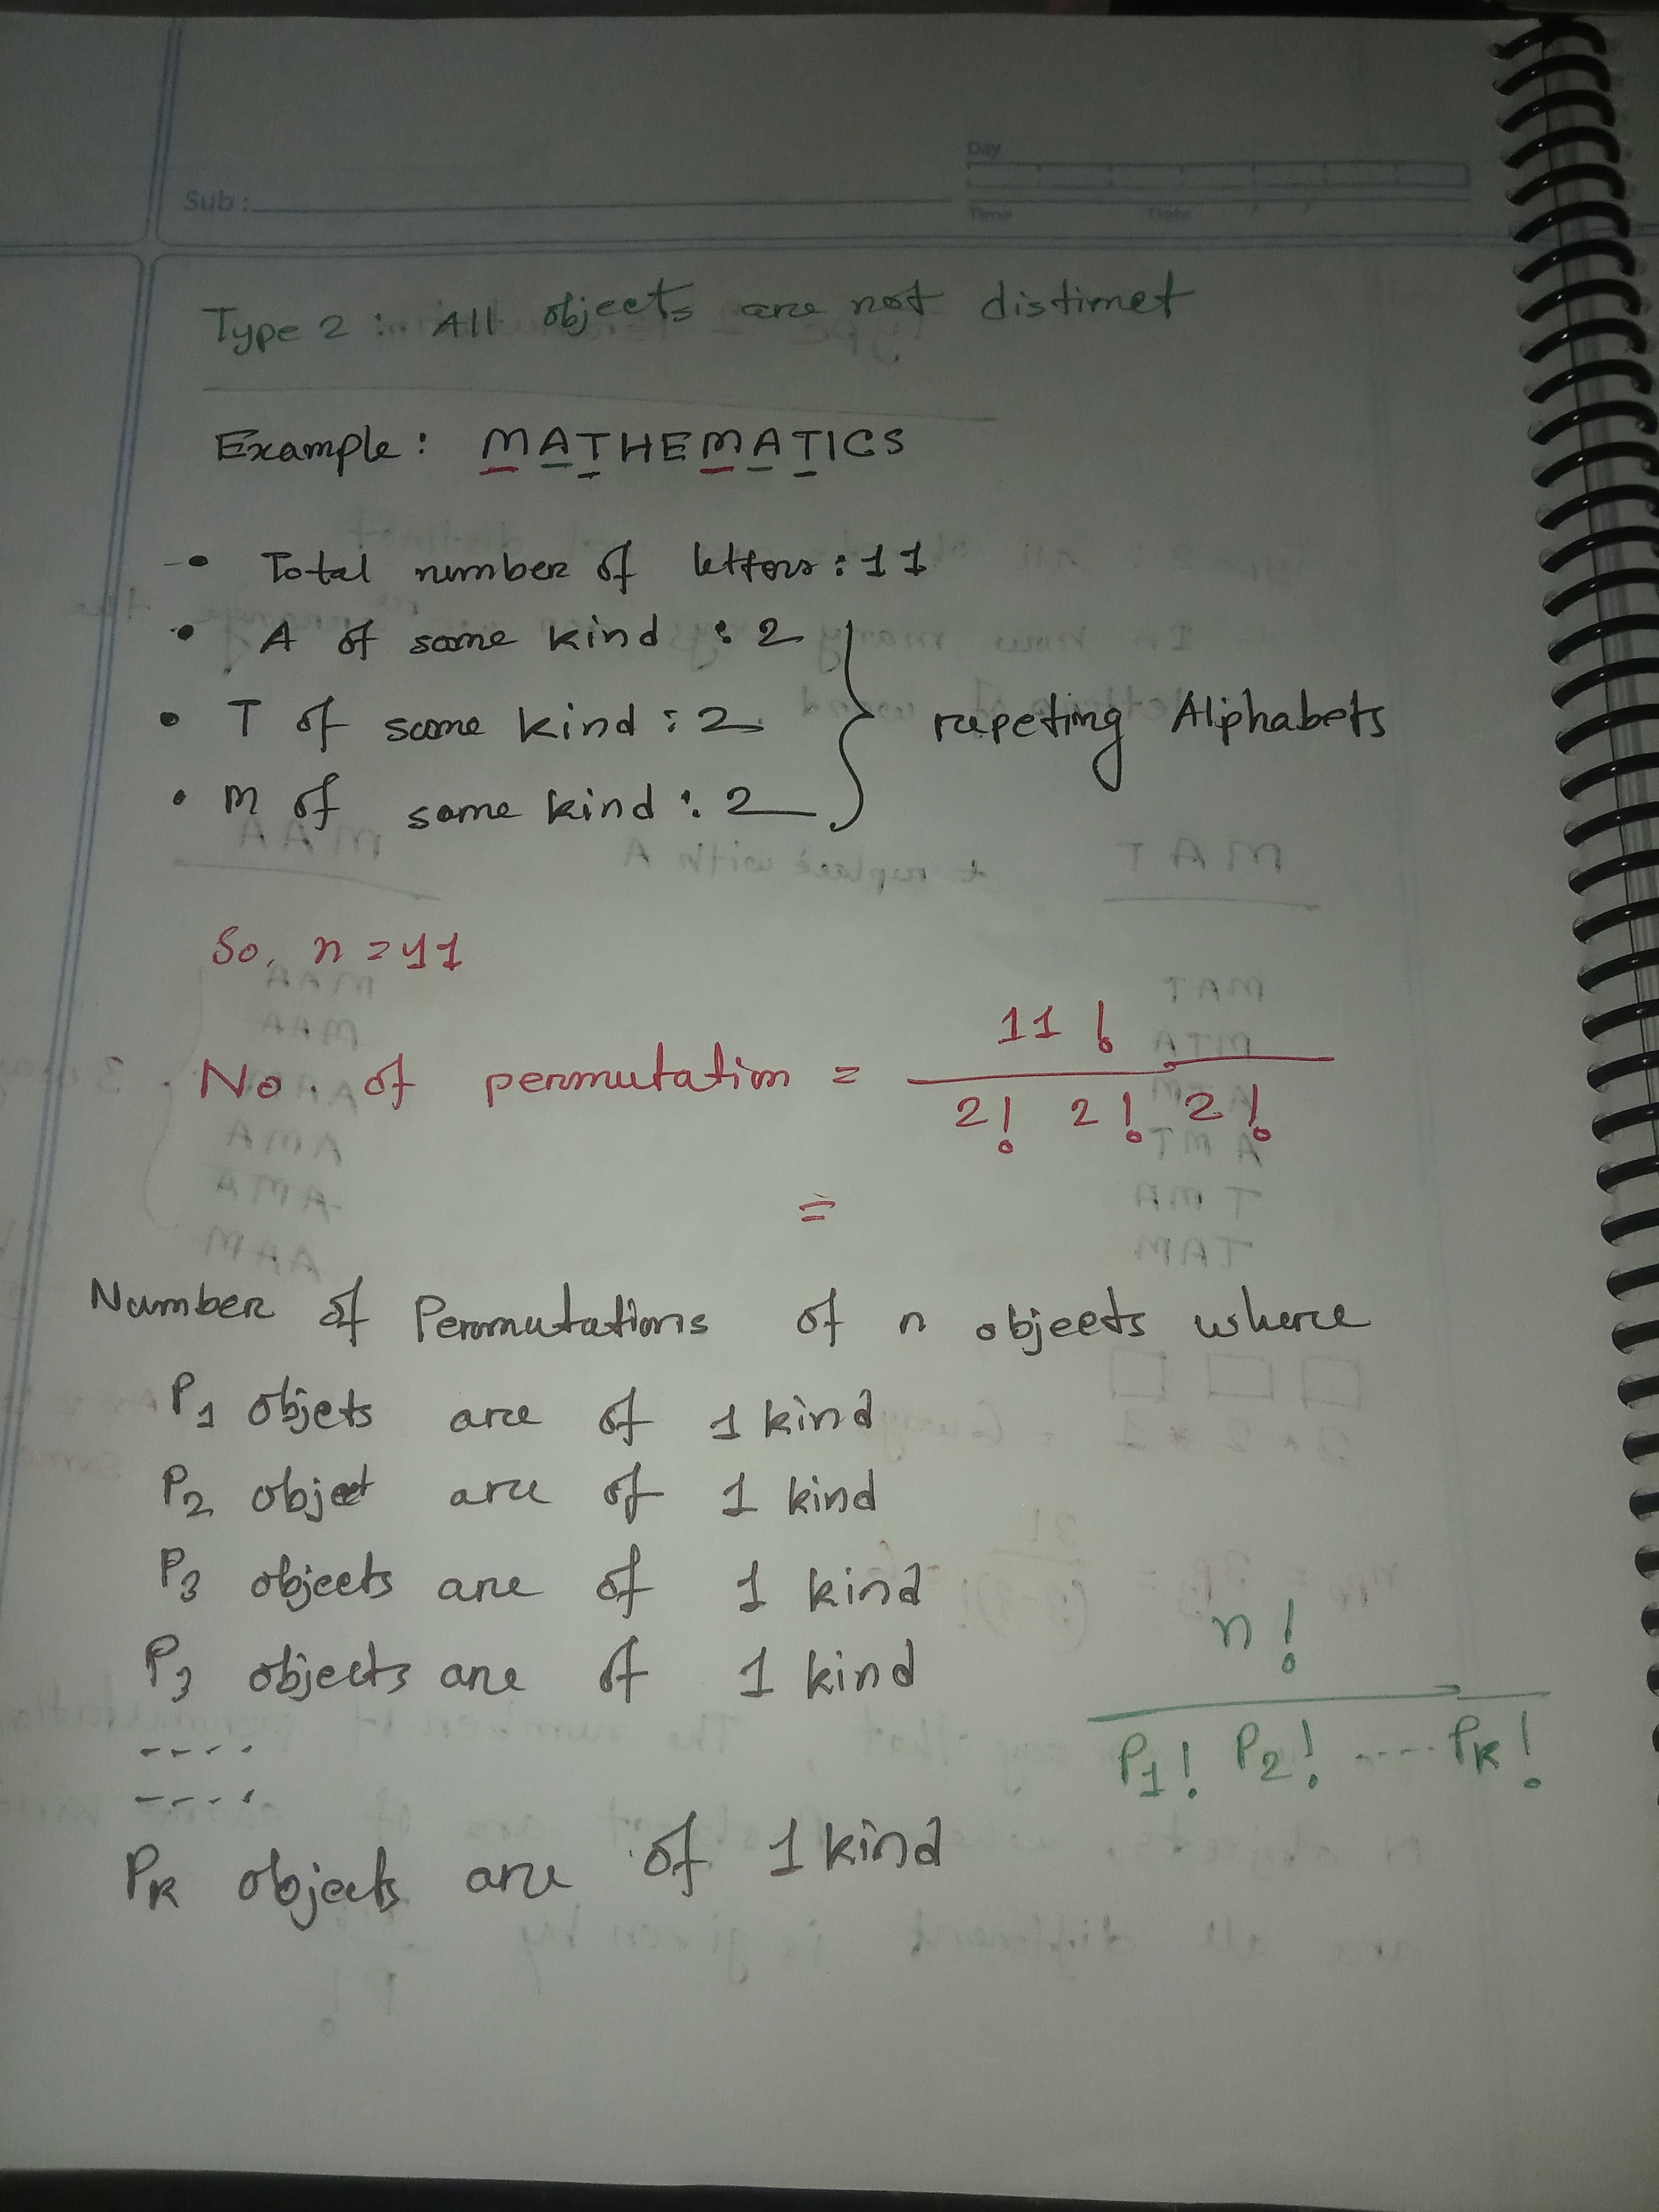 Day
Sub :
Time Date
Type 2 : All objects are not distinct
Example : MATHEMATICS
• Total number of letters : 11
• A of same kind : 2
• T of same kind : 2
repeting Alphabets
• M of same kind : 2
So, n = 11
No. of permutation = 11! / 2! 2! 2!
=
Number of Permutations of n objects where
P1 objets are of 1 kind
P2 object are of 1 kind
P3 objects are of 1 kind
P3 objects are of 1 kind
n!
----
P1! P2! ---- Pk!
----
Pk objects are of 1 kind